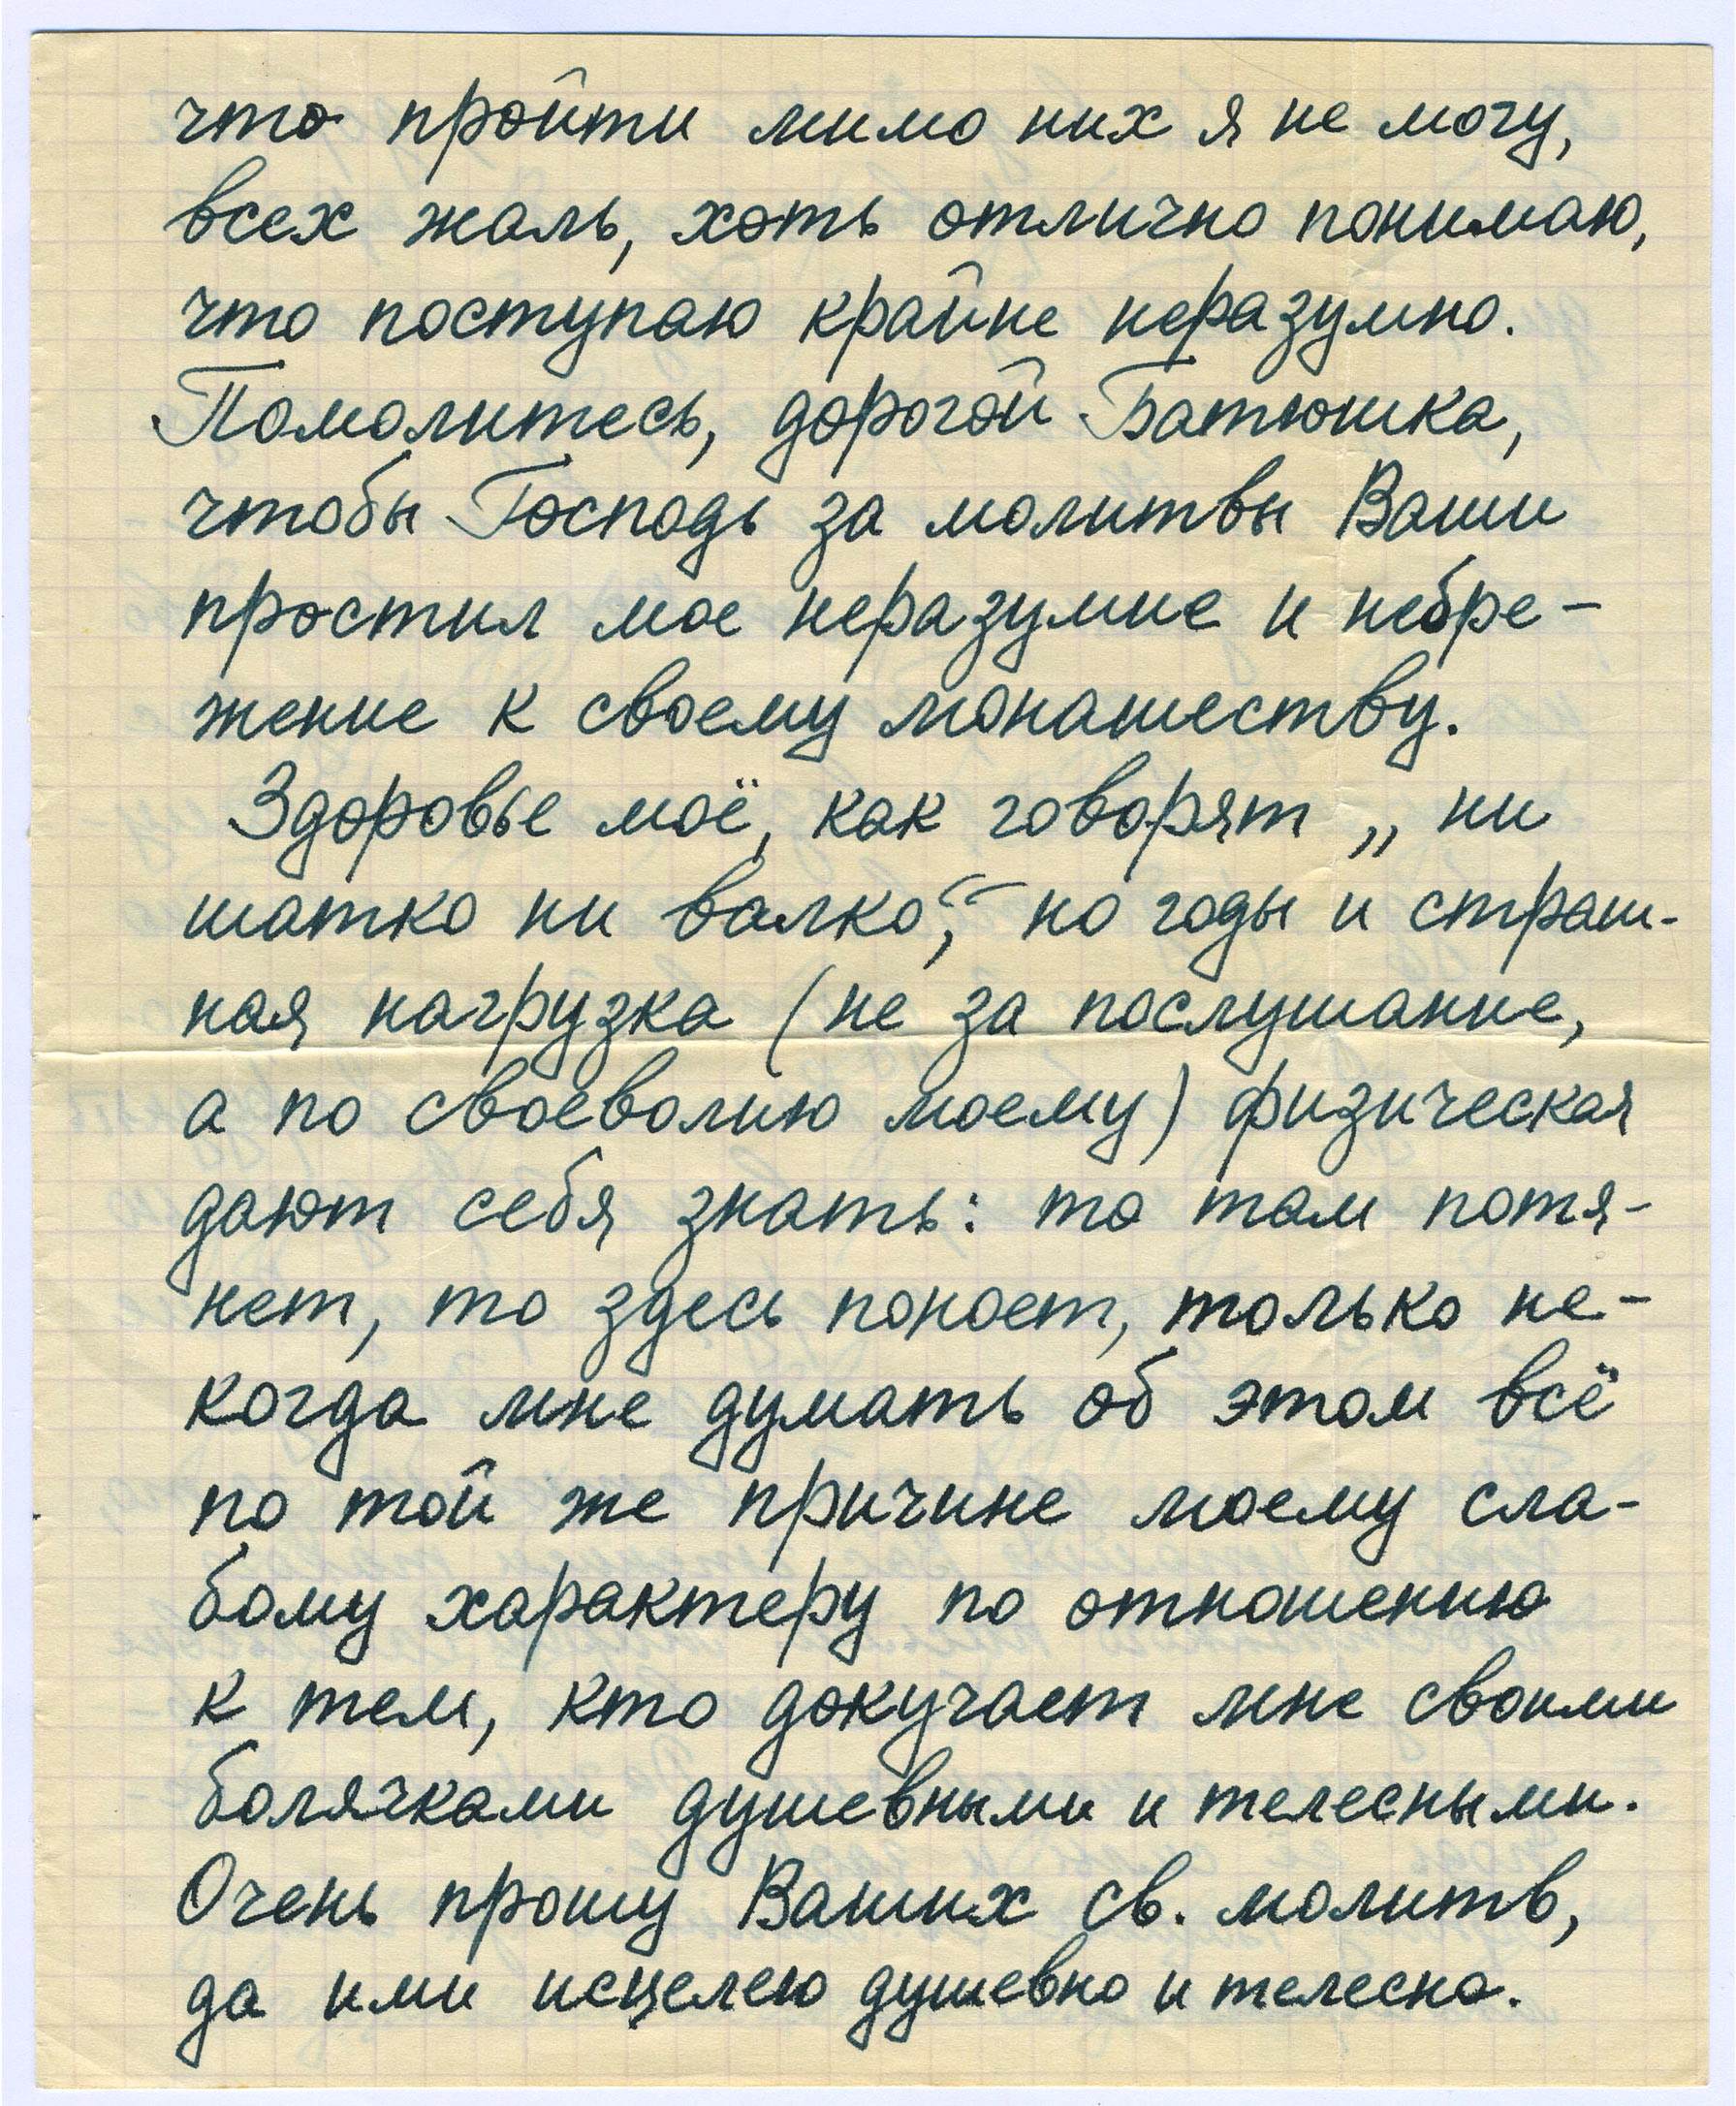 что пройти мимо них я не могу,
всех жаль, хоть отлично понимаю,
что поступаю крайне неразумно.
Помолитесь, дорогой Батюшка,
чтобы Господь за молитвы Ваши
простил мое неразумие и небре-
жение к своему монашеству.
Здоровье моё, как говорят „ ни
шатко ни валко“, но годы и страш-
ная нагрузка (не за послушание,
а по своеволию моему) физическая
дают себя знать: то там потя-
нет, то здесь поноет, только не-
когда мне думать об этом всё
по той же причине моему сла-
бому характеру по отношению
к тем, кто докучает мне своими
болячками душевными и телесными.
Очень прошу Ваших св. молитв,
да ими исцелею душевно и телесно.